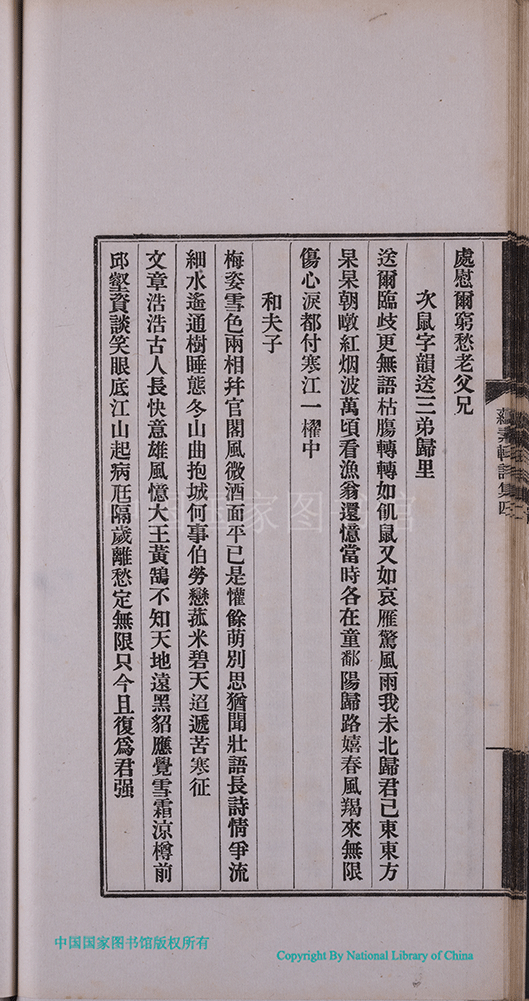 處慰爾窮愁老父兄
次鼠字韻送三弟歸里
送爾臨歧更無語枯腸轉轉如飢鼠又如哀雁驚風雨我未北歸君已東東方
杲杲朝暾紅烟波萬頃看漁翁還憶當時各在童鄱陽歸路嬉春風羯來無限
傷心淚都付寒江一櫂中
和夫子
梅姿雪色兩相幷官閣風微酒面平已是懽餘萌別思猶聞壯語長詩情爭流
細水遙通樹睡態冬山曲抱城何事伯勞戀菰米碧天迢遞苦寒征
文章浩浩古人長快意雄風憶大王黃鵠不知天地遠黑貂應覺雪霜涼樽前
邱壑資談笑眼底江山起病尫隔歲離愁定無限只今且復為君强
中国国家图书馆版权所有
Copyright By National Library of China